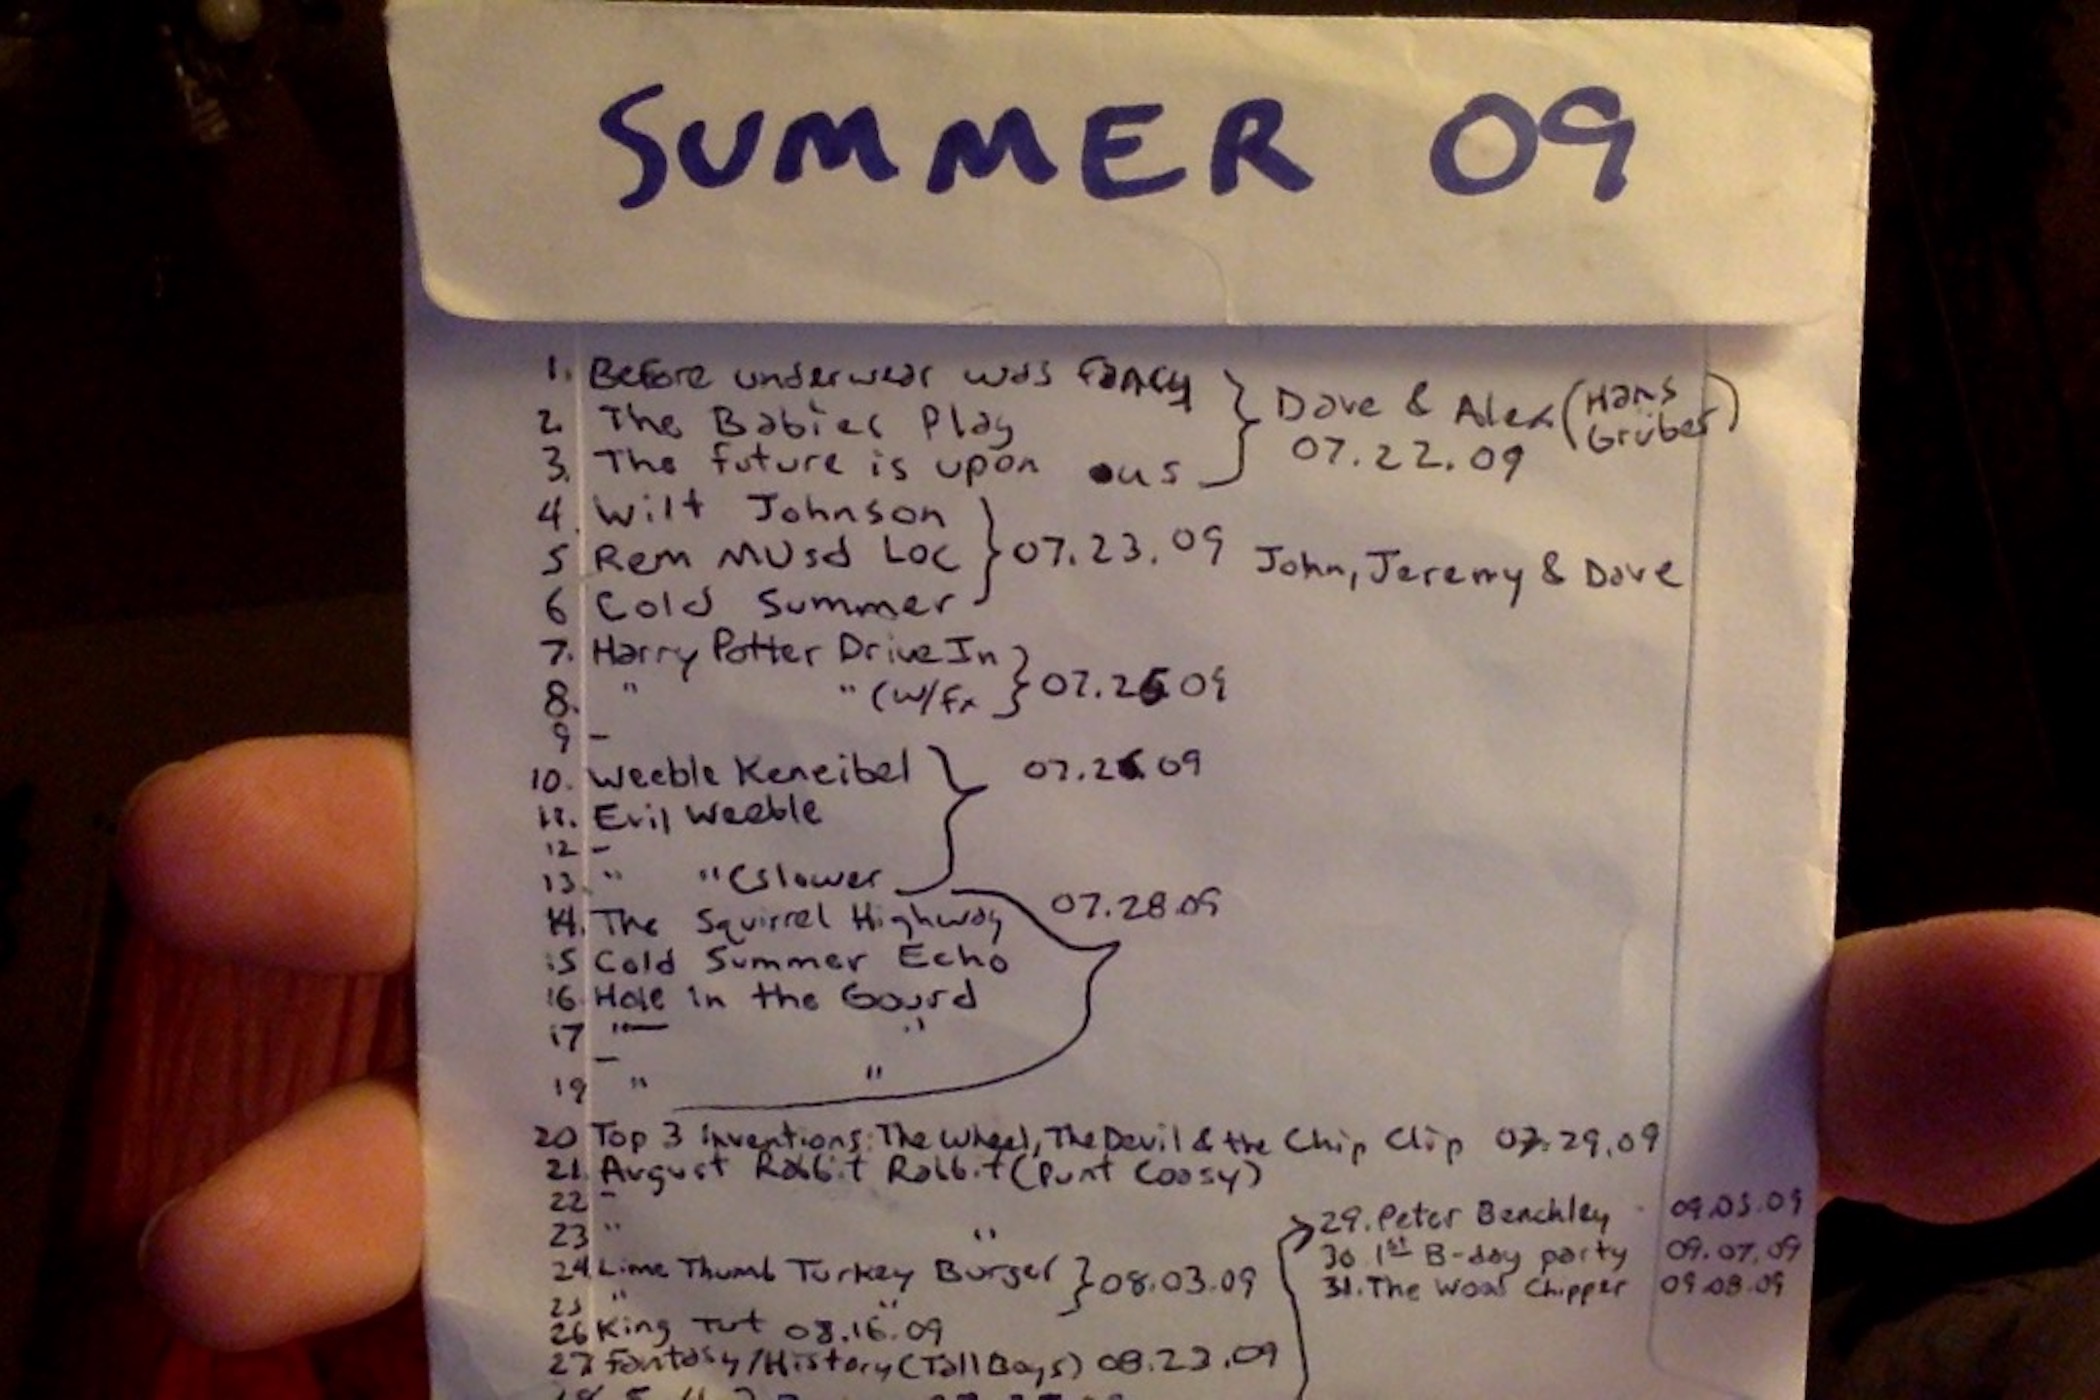 SUMMER 09
1. Before underwear was fancy } Dave & Alex (Hans Gruber)
2. The Babies Play 07.22.09
3. The future is upon us
4. Wilt Johnson
5 Rem MUsd Loc } 07.23.09 John, Jeremy & Dave
6 Cold Summer
7. Harry Potter Drive In } 07.25 09
8. " " (w/fx
9 -
10. Weeble Keneibel } 07.26 09
11. Evil Weeble
12 -
13. " " (slower
14. The Squirrel Highway 07.28.09
15 Cold Summer Echo
16 Hole in the Gourd
17 " "
-
19 " "
20 Top 3 inventions: The Wheel, The Devil & the Chip Clip 07.29.09
21. August Rabbit Rabbit (Punt Coasy)
22 -
23 " "
24. Lime Thumb Turkey Burger } 08.03.09
25 " "
26 King Tut 08.16.09
27 Fantasy/History (Tall Boys) 08.23.09
29. Peter Benchley - 09.05.09
30 1st B-day party 09.07.09
31. The Wood Chipper 09.08.09